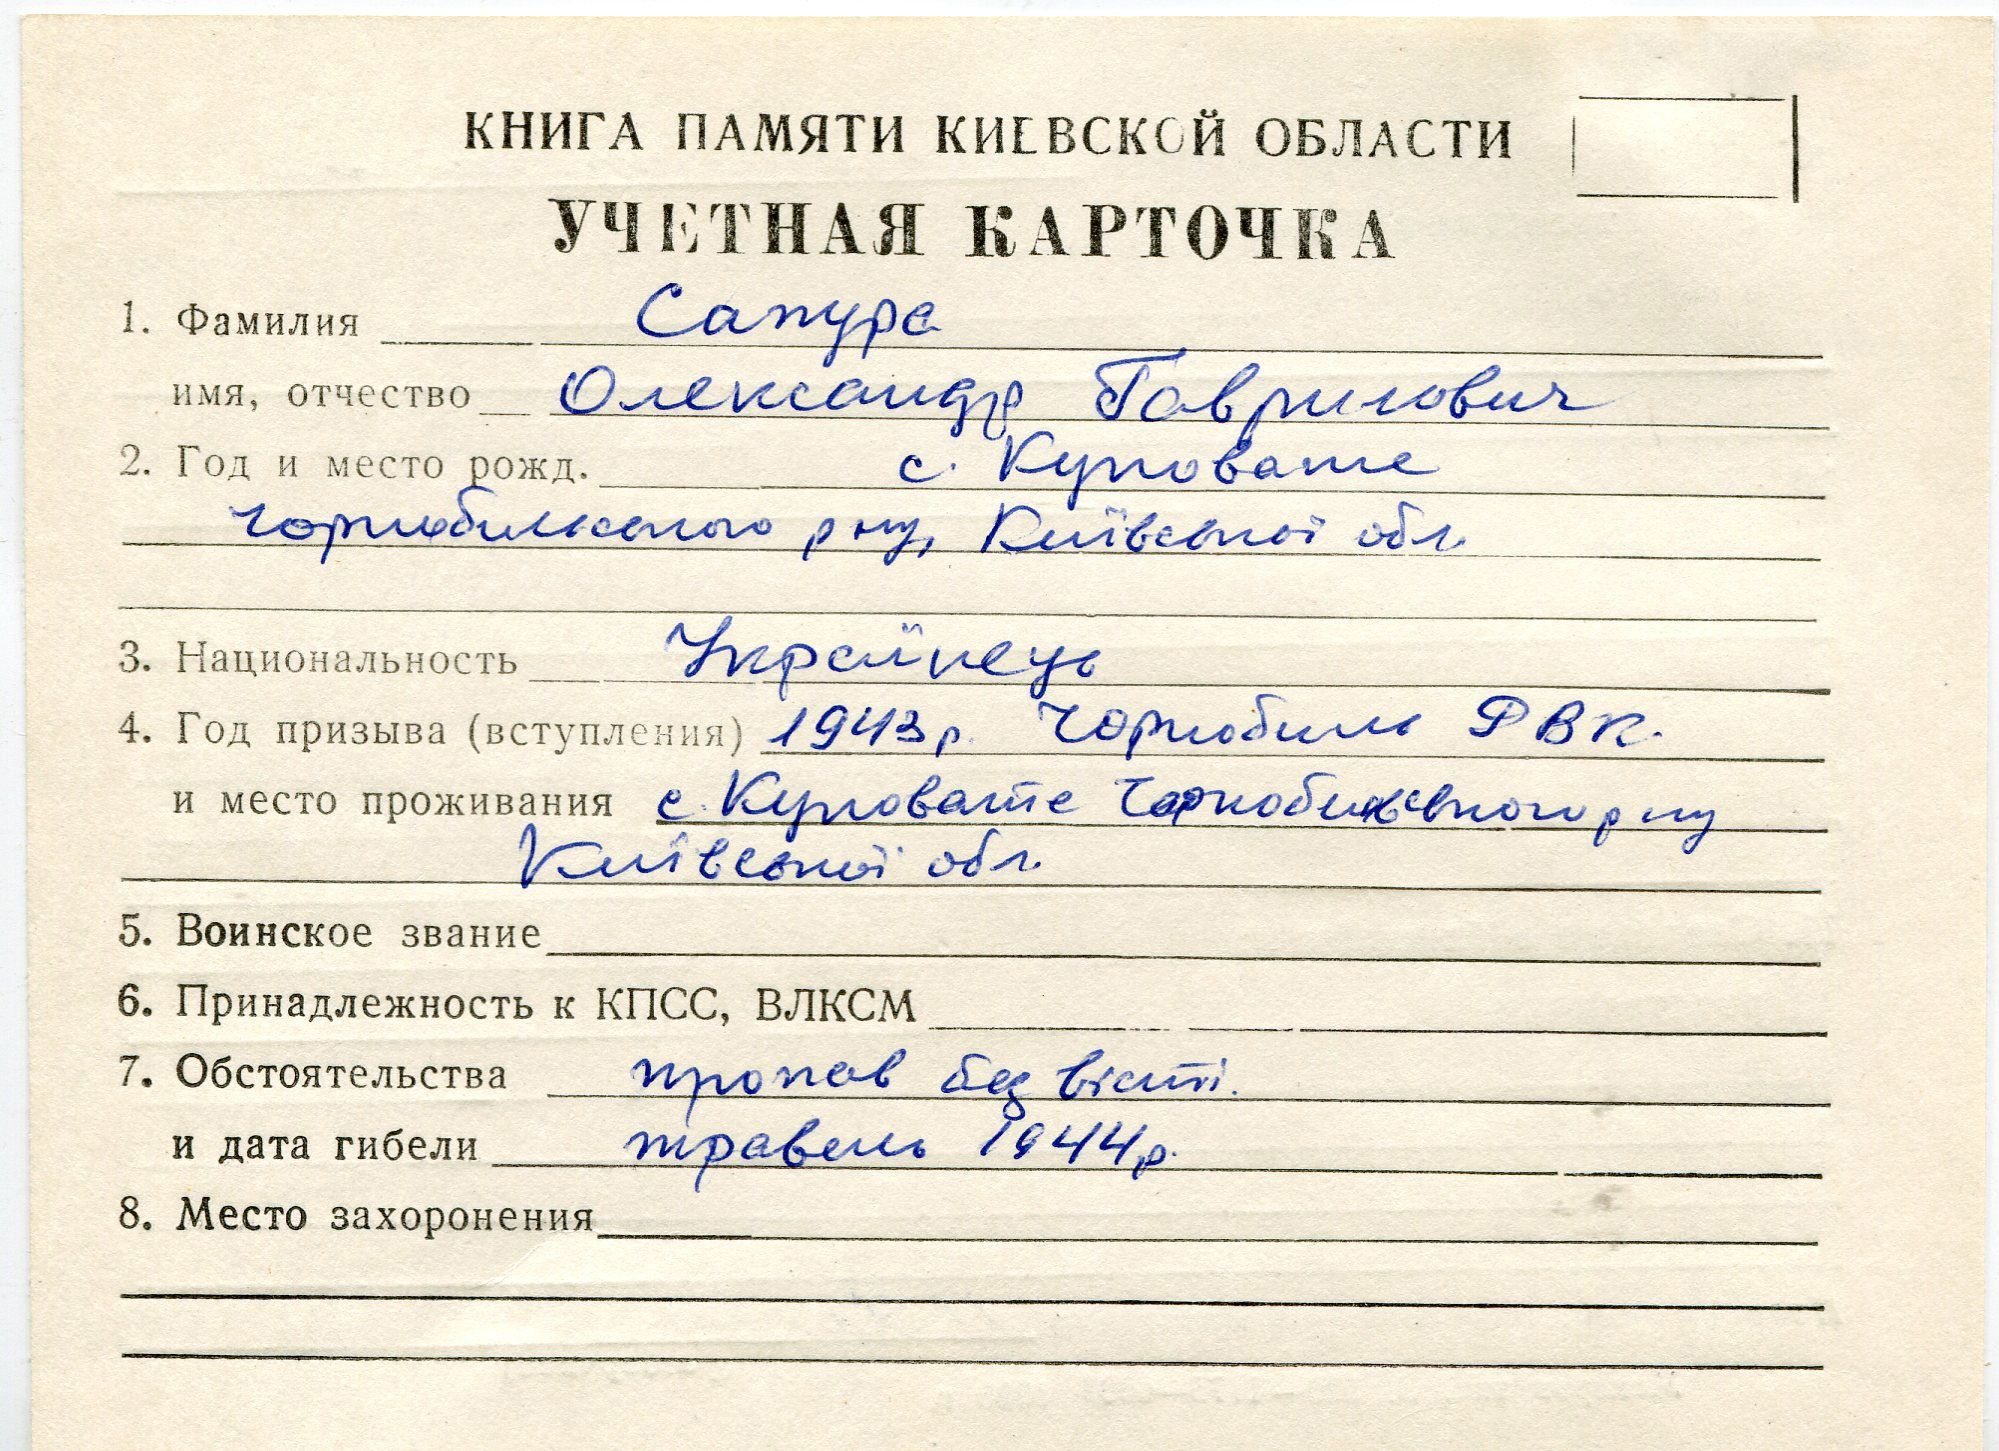 КНИГА ПАМЯТИ КИЕВСКОЙ ОБЛАСТИ
УЧЕТНАЯ КАРТОЧКА
1. Фамилия Сапура
имя, отчество Олександр Гаврилович
2. Год и место рожд. с. Куповате
Чорнобильського р ну, Київської обл.
3. Национальность Українець
4. Год призыва (вступления) 1943 р. Чорнобиль РВК.
и место проживания с. Куповате Чорнобильського р ну
Київської обл.
5. Воинское звание
6. Принадлежность к КПСС, ВЛКСМ
7. Обстоятельства пропав без вісті.
и дата гибели травень 1944 р.
8. Место захоронения